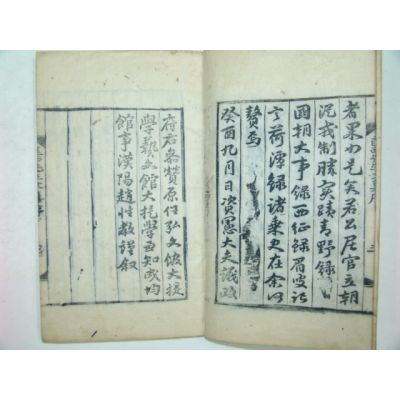 者果如是矣若公居官立朝
制勝實蹟青野錄
國朝大事錄西征錄眉叟記
言荷潭錄諸乘史在余何
贅焉
癸酉九月日資憲大夫議政
府右參贊原任弘文館大提
學藝文館大提學兼知成均
館事漢陽趙性敎謹叙